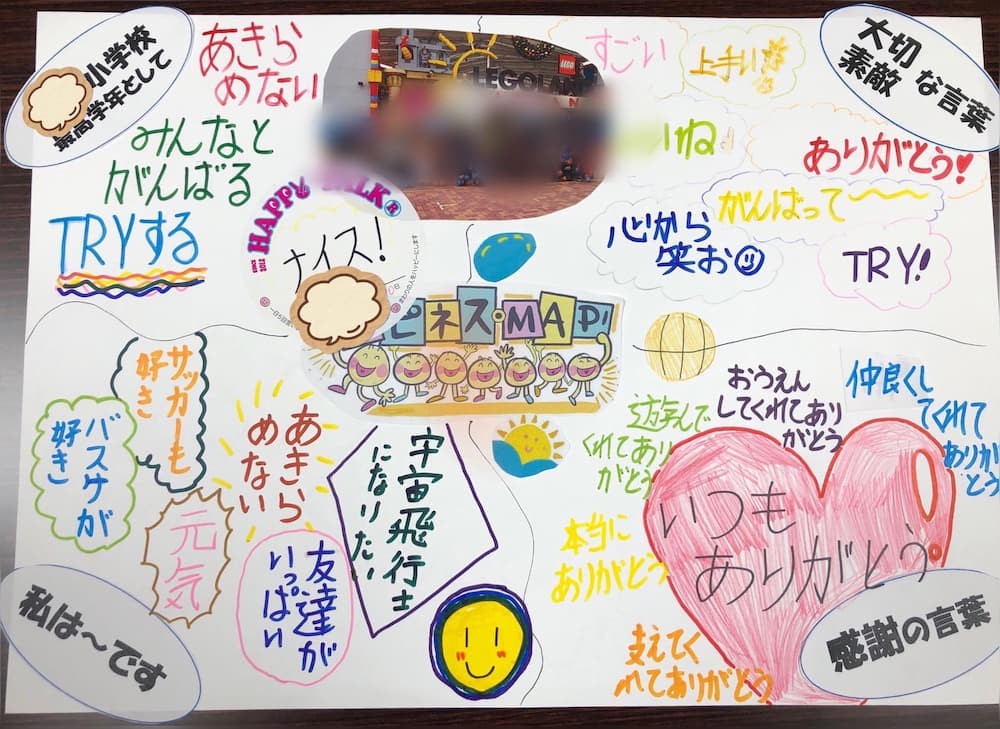 小学校
最高学年として
あきら
めない
みんなと
がんばる
TRYする
LEGO
LEGOLAN
HAPPY TALK®
ナイス!
すごい
上手い
いね
ありがとう!
がんばって〜
心から
笑お
TRY!
大切
素敵
な言葉
ピネス・MAP!
サッカーも
好き
バスケが
好き
あきら
めない
元気
友達が
いっぱい
宇宙飛行士
になりたい
私は〜です
遊んで
くれてあり
がとう
おうえん
してくれてあり
がとう
仲良くし
てくれて
ありが
とう
いつも
ありがとう。
本当に
ありがとう
支えてく
れてありがとう
感謝の言葉